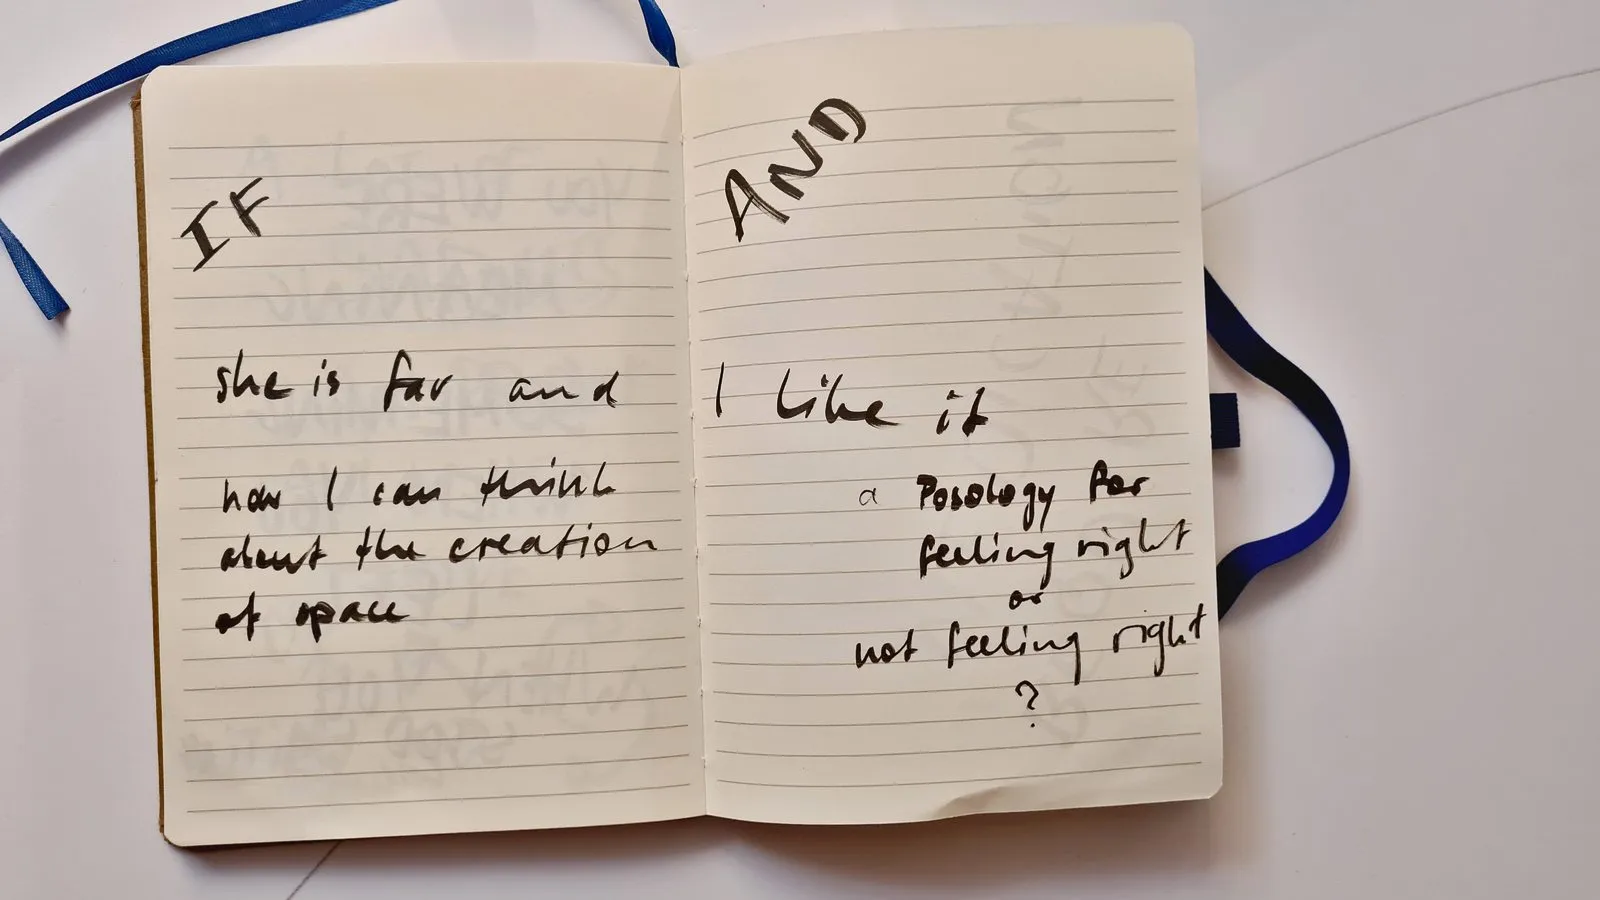 IF
she is far and
how I can think
about the creation
of space
AND
I like it
a Posology for
feeling right
or
not feeling right
?